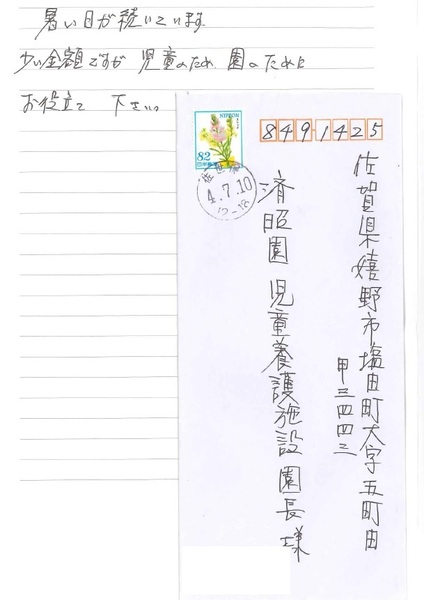 暑い日が続いています
少い金額ですが 児童のため、園のために
お役立て 下さい。
NIPPON
82
日本郵便
佐世保
4.7.10
12-18
8491425
佐賀県嬉野市塩田町大字五町田
甲三四四三
済昭園 児童養護施設 園長様